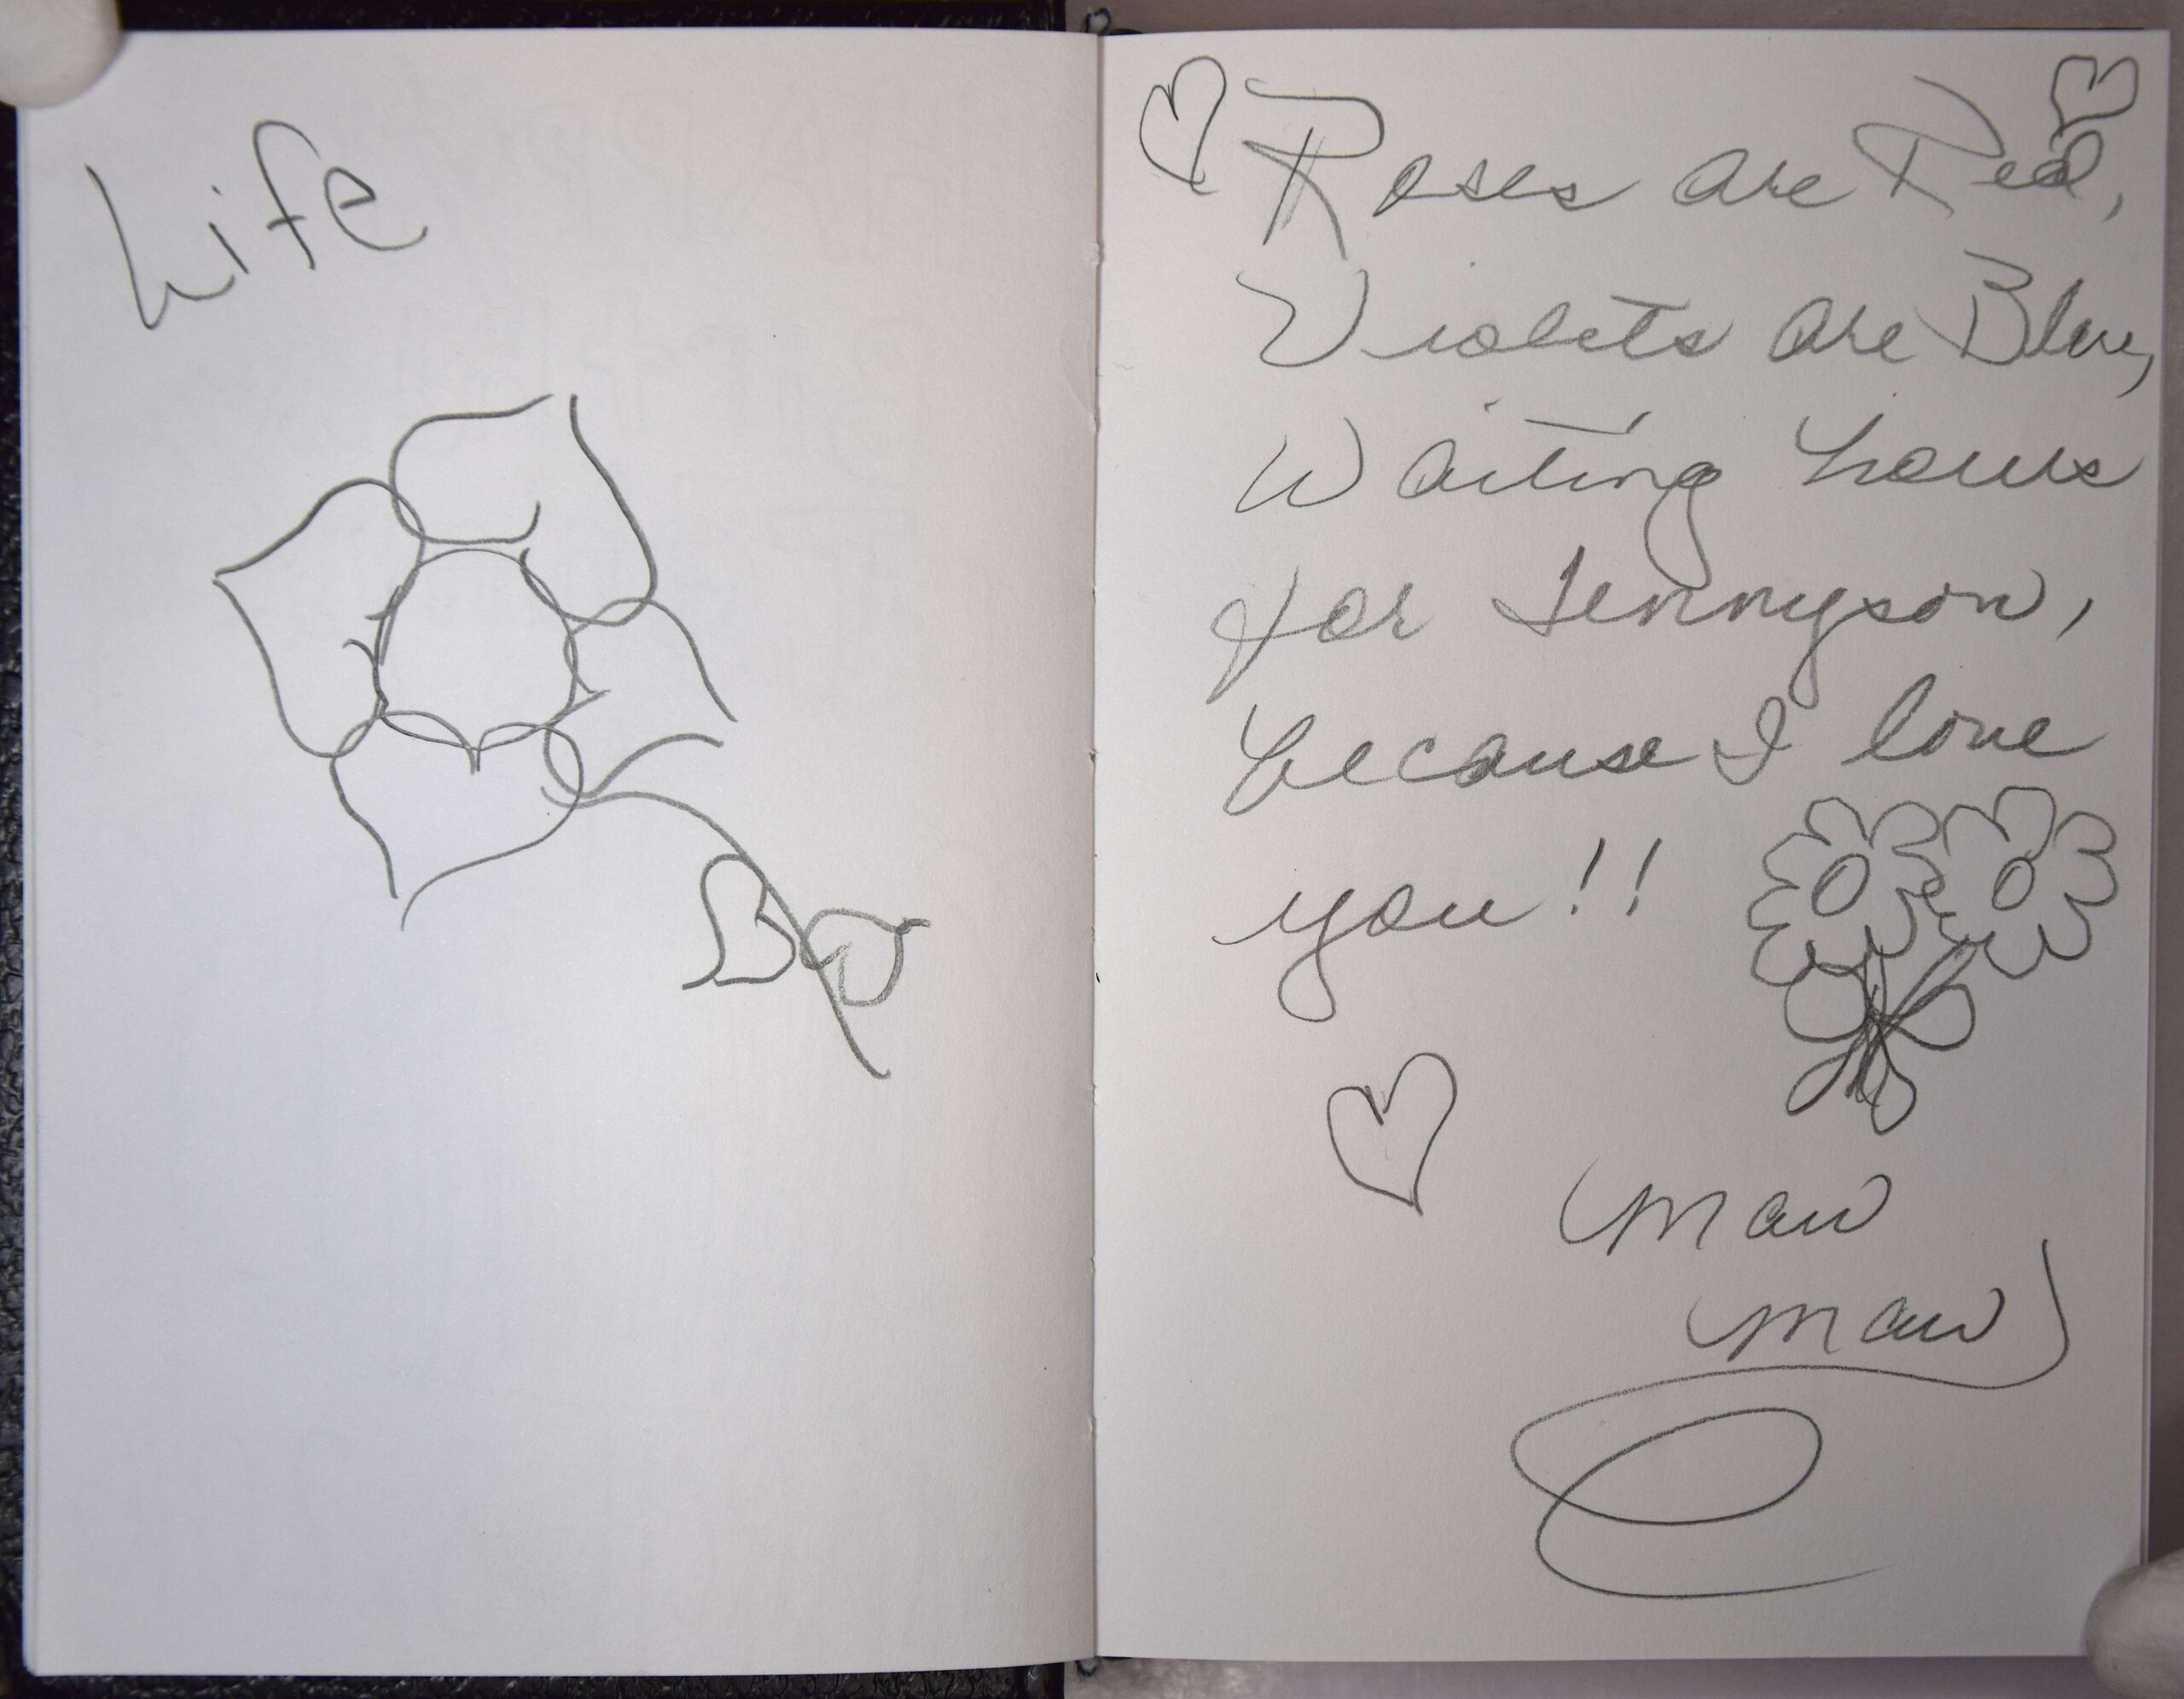 Life
Roses are Red,
Violets are Blue,
Waiting hours
for Tennyson,
because I love
you!!
Maw
Maw